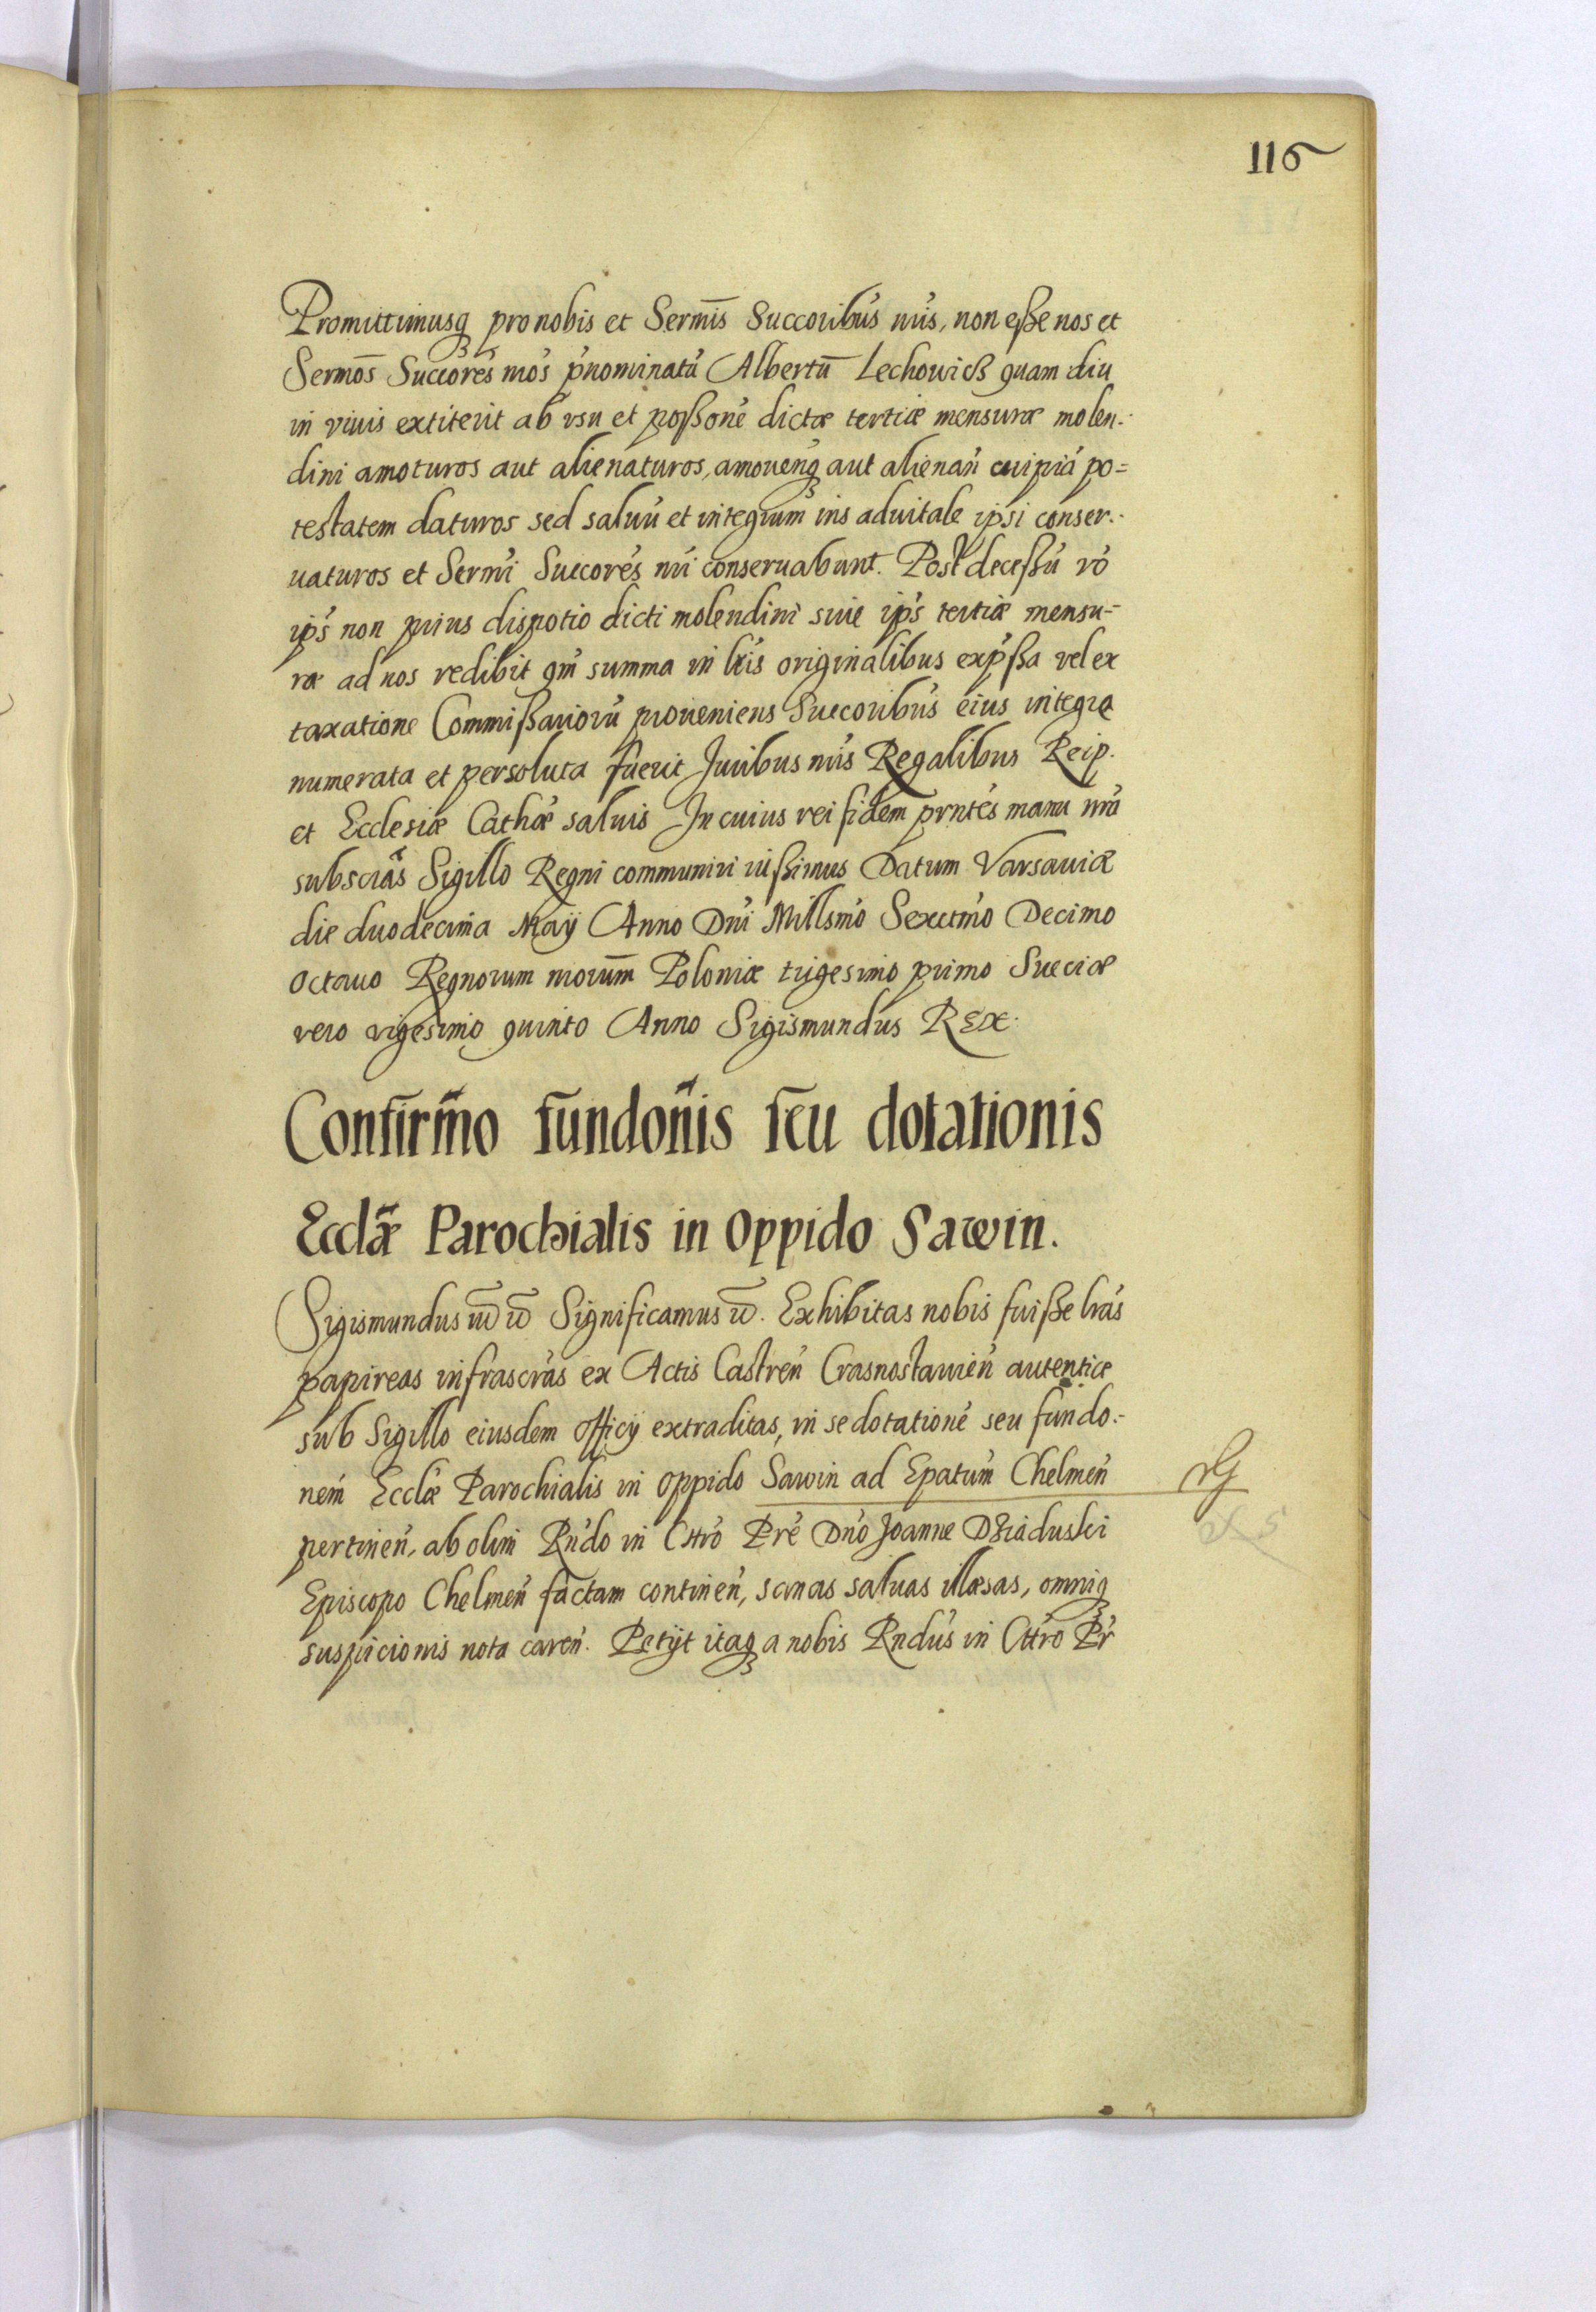 116
Promittimusq pro nobis et Serm̄is Succoribus nr̄is, non eße nos et
Sermōs Succores nros p̄nominatū Albertū Lechowicß quam diu
in viuis extiterit ab vsu et poßone dictæ tertiæ mensuræ molen-
dini amoturos aut alienaturos, amouenq aut alienan̄ cuipiā po=
testatem daturos sed saluū et integrum ius aduitale ipsi conser-
uaturos et Sermi Succores nr̄i conseruabunt. Post deceßū vo
ips̄ non prius dispotio dicti molendini siue ips̄ tertiæ mensu-
ræ ad nos redibit qm̄ summa in lr̄is originalibus exp̄ßa vel ex
taxatione Commißariorū proueniens Succoribus eius integre
numerata et persoluta fuerit Juribus nr̄is Regalibus Reip.
et Ecclesiæ Cathœ saluis In cuius rei fidem prntes manu nrā
subscrās Sigillo Regni communiri iußimus Datum Varsauiæ
die duodecima Maij Anno Dni Millsmo Sexctmo Decimo
octauo Regnorum nrorum̄ Poloniæ trigesimo primo Sueciæ
vero vigesimo quinto Anno Sigismundus REX.
Confirm̄o fundon̄is seu dotationis
Ecclǣ Parochialis in Oppido Sawin.
Sigismundus Significamus Exhibitas nobis fuiße lrās
papireas infrascrās ex Actis Castren̄ Crasnostauien̄ autentice
sub Sigillo eiusdem Officij extraditas, in se dotationē seu fundo-
nem Ecclæ Parochialis in Oppido Sawin ad Epatum̄ Chelmen̄
pertinen̄, ab olim Rndo in Chro Pre Dno Joanne Dziaduski
Episcopo Chelmen̄ factam continen̄, sanas saluas illæsas, omniq
suspicionis nota caren̄. Petijt itaq a nobis Rndus in Chro Pr